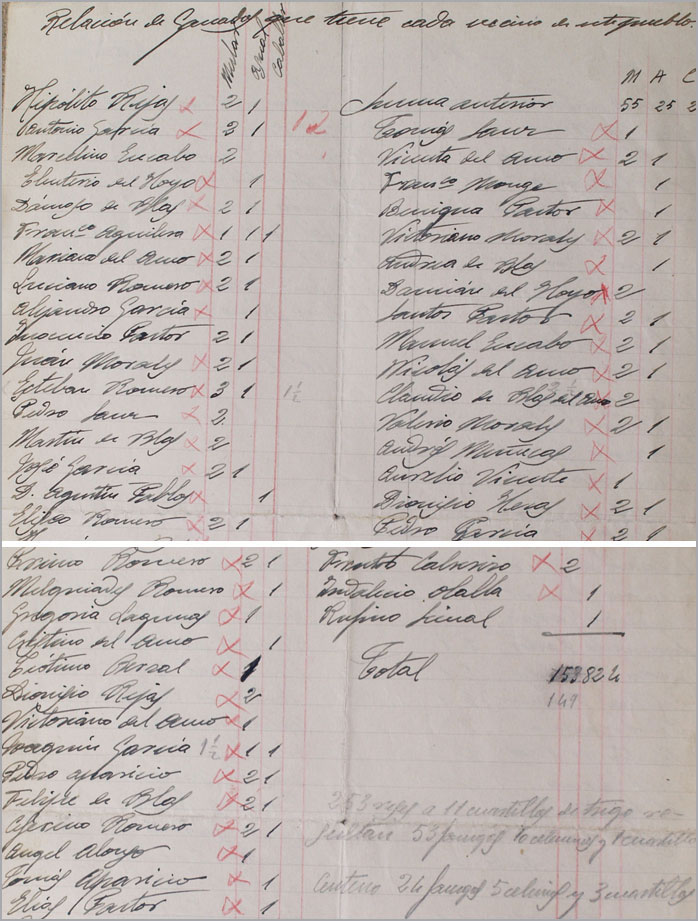 Relación de Ganados que tiene cada vecino de este pueblo.
Mular Asnal Caballar
Hipólito Rojas 2 1
Antonio García 3 1
Marcelino Encabo 2
Eleuterio del Hoyo 1
Dámaso de Blas 2 1
Franco Aguilera 1 1 1
Mariano del Amo 2 1
Luciano Romero 2 1
Alejandro García 1
Inocencio Pastor 2 1
Julián Morales 2 1
Esteban Romero 3 1 1 1/2
Pedro Sanz 2
Martín de Blas 2
José García 2 1
D. Agustín Pablos 1
Eliseo Romero 2 1
Romero 2 1
Melquiades Romero 1
Gregoria Lagunas 1
Cristino del Amo 1
Teótimo Berzal 1
Dionisio Rojas 2
Victoriano del Amo 1
Joaquín García 1 1/2 1 1
Pedro Aparicio 2 1
Felipe de Blas 2 1
Ceferino Romero 2 1
Angel Alonso 1
Tomás Aparicio 1
Elías Pastor 1
M A C
Suma anterior 55 25 2
Tomás Sanz 1
Vicenta del Amo 2 1
Franco Monge 1
Benigna Pastor 1
Victoriano Morales 2 1
Andrea de Blas 1
Damián del Hoyo 2
Santos Pastor 2 1
Manuel Encabo 2 1
Nicolás del Amo 2 1
Claudio de Blas del Amo 2
Valerio Morales 2 1
Andrés Muñecas 1
Aurelio Vicente 1
Dionisio Heras 2 1
Pedro García 2 1
Fructos Cabrerizo 2
Indalecio Olalla 1
Rufino 1
Total 153 82 4
149
253 reses a 11 cuartillos de trigo re-
sultan 53 fanegas 10 celemines y 1 cuartillo
Centeno 24 fanegas 5 celemines y 3 cuartillos